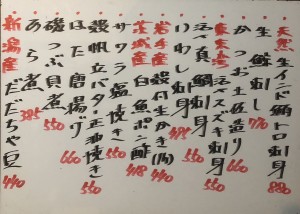 天然生インド鮪トロ刺身 880
生鯵刺し 770
かつお土佐造り 660
東京湾産活〆スズキ刺身 550
活〆真鯛刺身
いわし刺身 495
岩手産殻付生がき(1ヶ)
茨城産白魚ポン酢 418
サワラ塩焼き 550
殻帆立バター正油焼き 550
ほた唐揚げ 660
磯つぶ煮 550
あら煮 385
新潟産だだちゃ豆 440